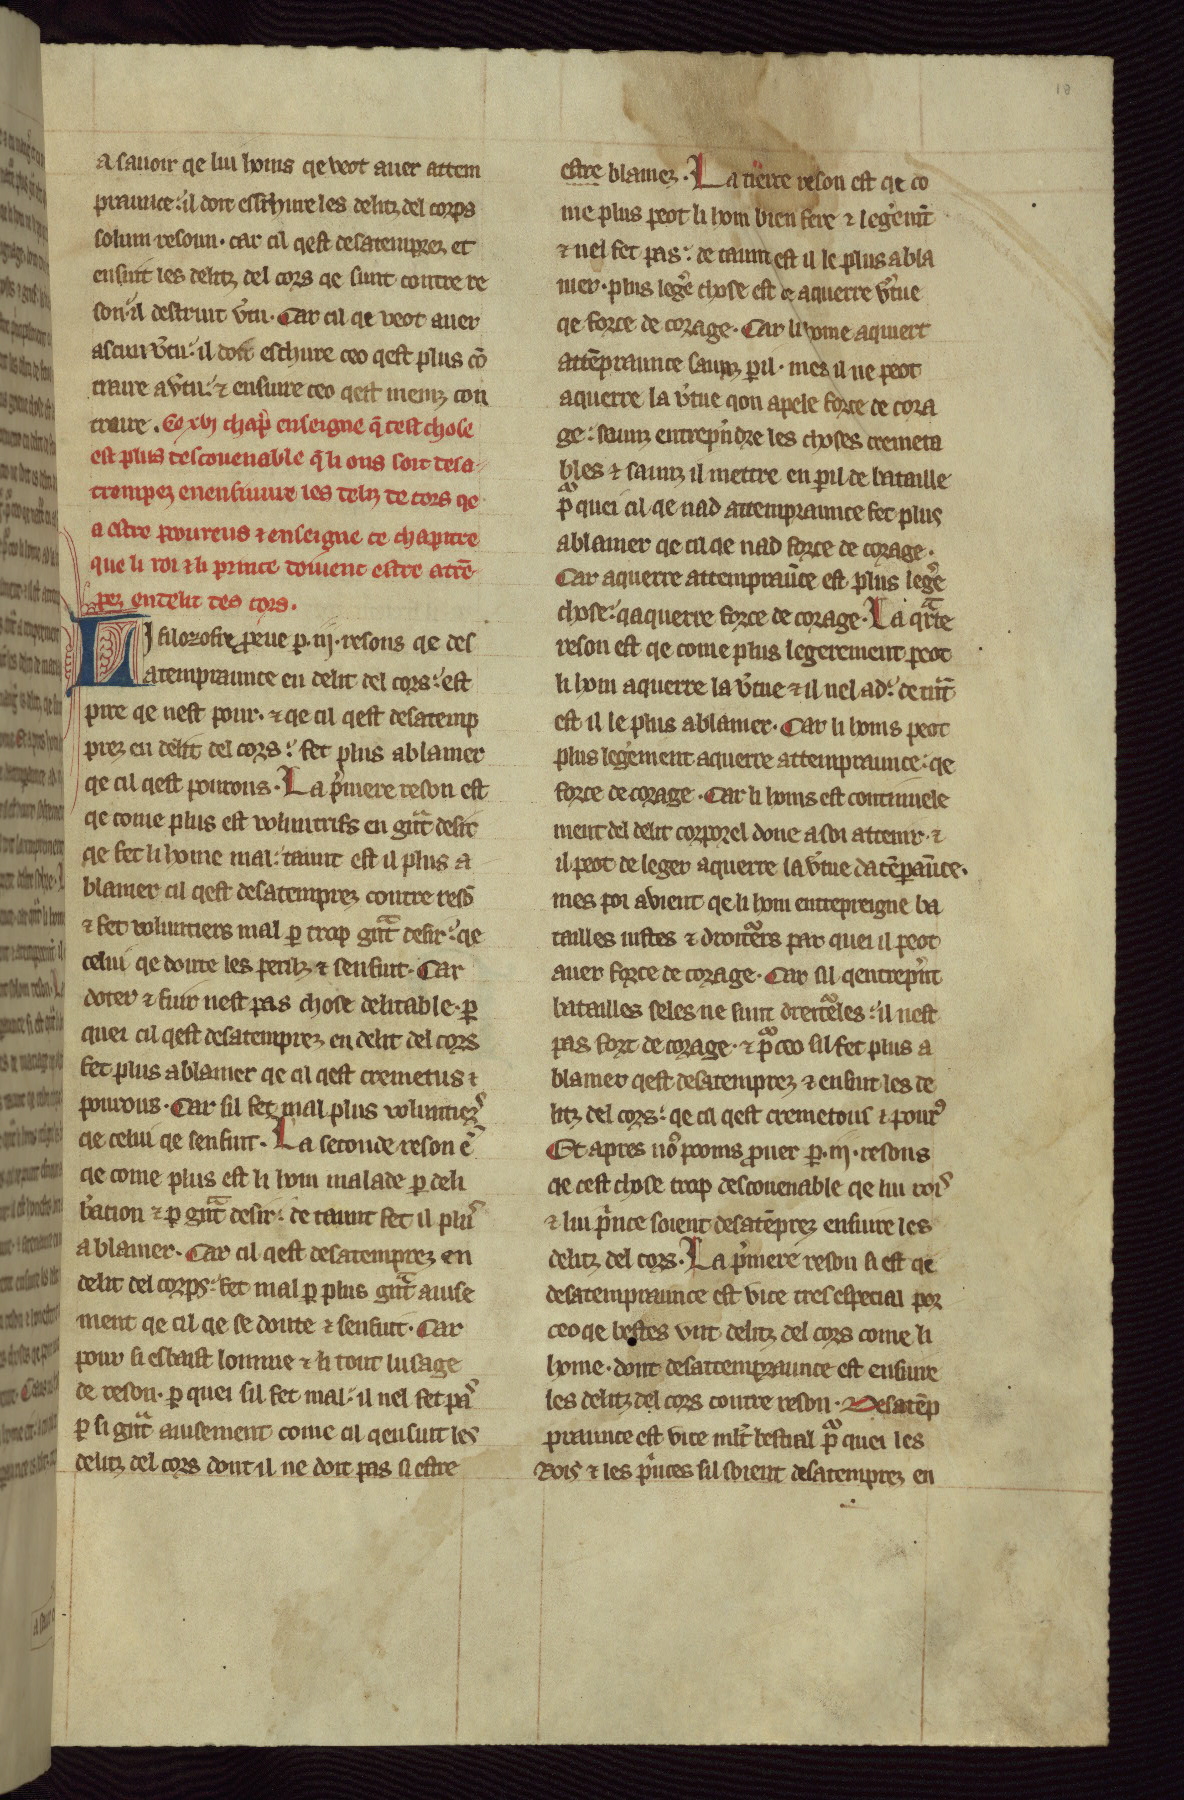 a sauoir qe lui homs qe veot auer attem
praunce: il doit eschiure les delitz del corps
solum resoun. car cil qest desatemprez et
ensuit les delitz del cors qe sunt contre re
son: il destruit v̾tu. Car cil qe veot auer
ascun v̾tu: il doit eschure ceo qest plus cō
traire a v̾tu: ⁊ ensuire ceo qest meinz con
traire. Ce xvj chap̾ enseigne q̄ cest chose
est plus descouenable q̄ li ons soit desa-
trempez en ensuiuire les delz de cors qe
a estre pourous ⁊ enseigne ce chapitre
que li roi ⁊ li prince doiuent estre atrē-
pez en delit des cors.
LJ filozofre proeue ꝑ .iij. resons qe des
atempraunce en delit del cors: est
pire qe nest pour. ⁊ qe cil qest desatemp
prez en delit del cors: fet plus a blamer
qe cil qest pourous. La p̾mere reson est
qe come plus est voluntrifs en gᵃnt desir
qe fet li home mal: taunt est il plus a
blamer cil qest desatemprez contre resō
⁊ fet voluntiers mal ꝑ trop gᵃnt desir: qe
celui qe doute les perilz ⁊ senfuit. Car
doter ⁊ fuir nest pas chose delitable. ꝑ
quei cil qest desatemprez en delit del cors
fet plus a blamer qe cil qest cremetus ⁊
pourous. Car sil fet mal plus voluntiez
qe celui qe senfuit. La seconde reson ē
qe come plus est li hom malade ꝑ deli
b̾acion ⁊ ꝑ gᵃnt desir: de taunt fet il plus
a blamer. Car cil qest desatemprez en
delit del corps: fet mal ꝑ plus gᵃnt auise
ment qe cil qe se doute ⁊ senfuit. Car
pour si esbaist lomme ⁊ li tout lusage
de reson. ꝑ quei sil fet mal: il nel fet pas
ꝑ si gᵃnt auisement come cil qensuit les
delitz del cors dont il ne doit pas si estre
estre blamez. La tierce reson est qe co
me plus peot li hom bien fere ⁊ leg̾emēt
⁊ nel fet pas: de taunt est il le plus a bla
mer. plus leg̾e chose est de aquerre v̾tue
qe force de corage. Car li home aquiert
attēpraunce saunz ꝑil. mes il ne peot
aquerre la v̾tue qon apele force de cora
ge: saunz entrep̾ndre les choses cremeta
bles ⁊ saunz il mettre en ꝑil de bataille
p̾ quei cil qe nad attempraunce fet plus
a blamer qe cil qe nad force de corage.
Car aquerre attempraūce est plus leg̾e
chose: qaquerre force de corage. La qᵃrte
reson est qe come plus legerement peot
li hom aquerre la v̾tue ⁊ il nel ad: de tāt
est il le plus a blamer. Car li homs peot
plus leg̾ement aquerre attempraunce: qe
force de corage. Car li homs est continuele
ment del delit corporel done a soi attenir. ⁊
il peot de leger aquerre la v̾tue datēꝑaūce.
mes poi avient qe li hom entrepreigne ba
tailles iustes ⁊ droiturers par quei il peot
auer force de corage. Car sil qentrep̾nt
batailles seles ne sunt dreitureles: il nest
pas fort de corage. ⁊ p̾ ceo sil fet plus a
blamer qest desatemprez ⁊ ensuit les de
litz del cors: qe cil qest cremetous ⁊ pour⁹
Et apres no⁹ pooms prouer ꝑ .iij. resons
qe cest chose trop descouenable qe lui rois
⁊ lui p̾nce soient desatēprez ensiure les
delitz del cors. La p̾mere reson si est qe
desatempraunce est vice tres especial por
ceo qe bestes vnt delitz del cors come li
home. dont desattempraunce est ensiure
les delitz del cors contre reson. Desatēp
praunce est vice mlt bestial p̾ quei les
Rois ⁊ les p̾nces sil soient desatemprez en